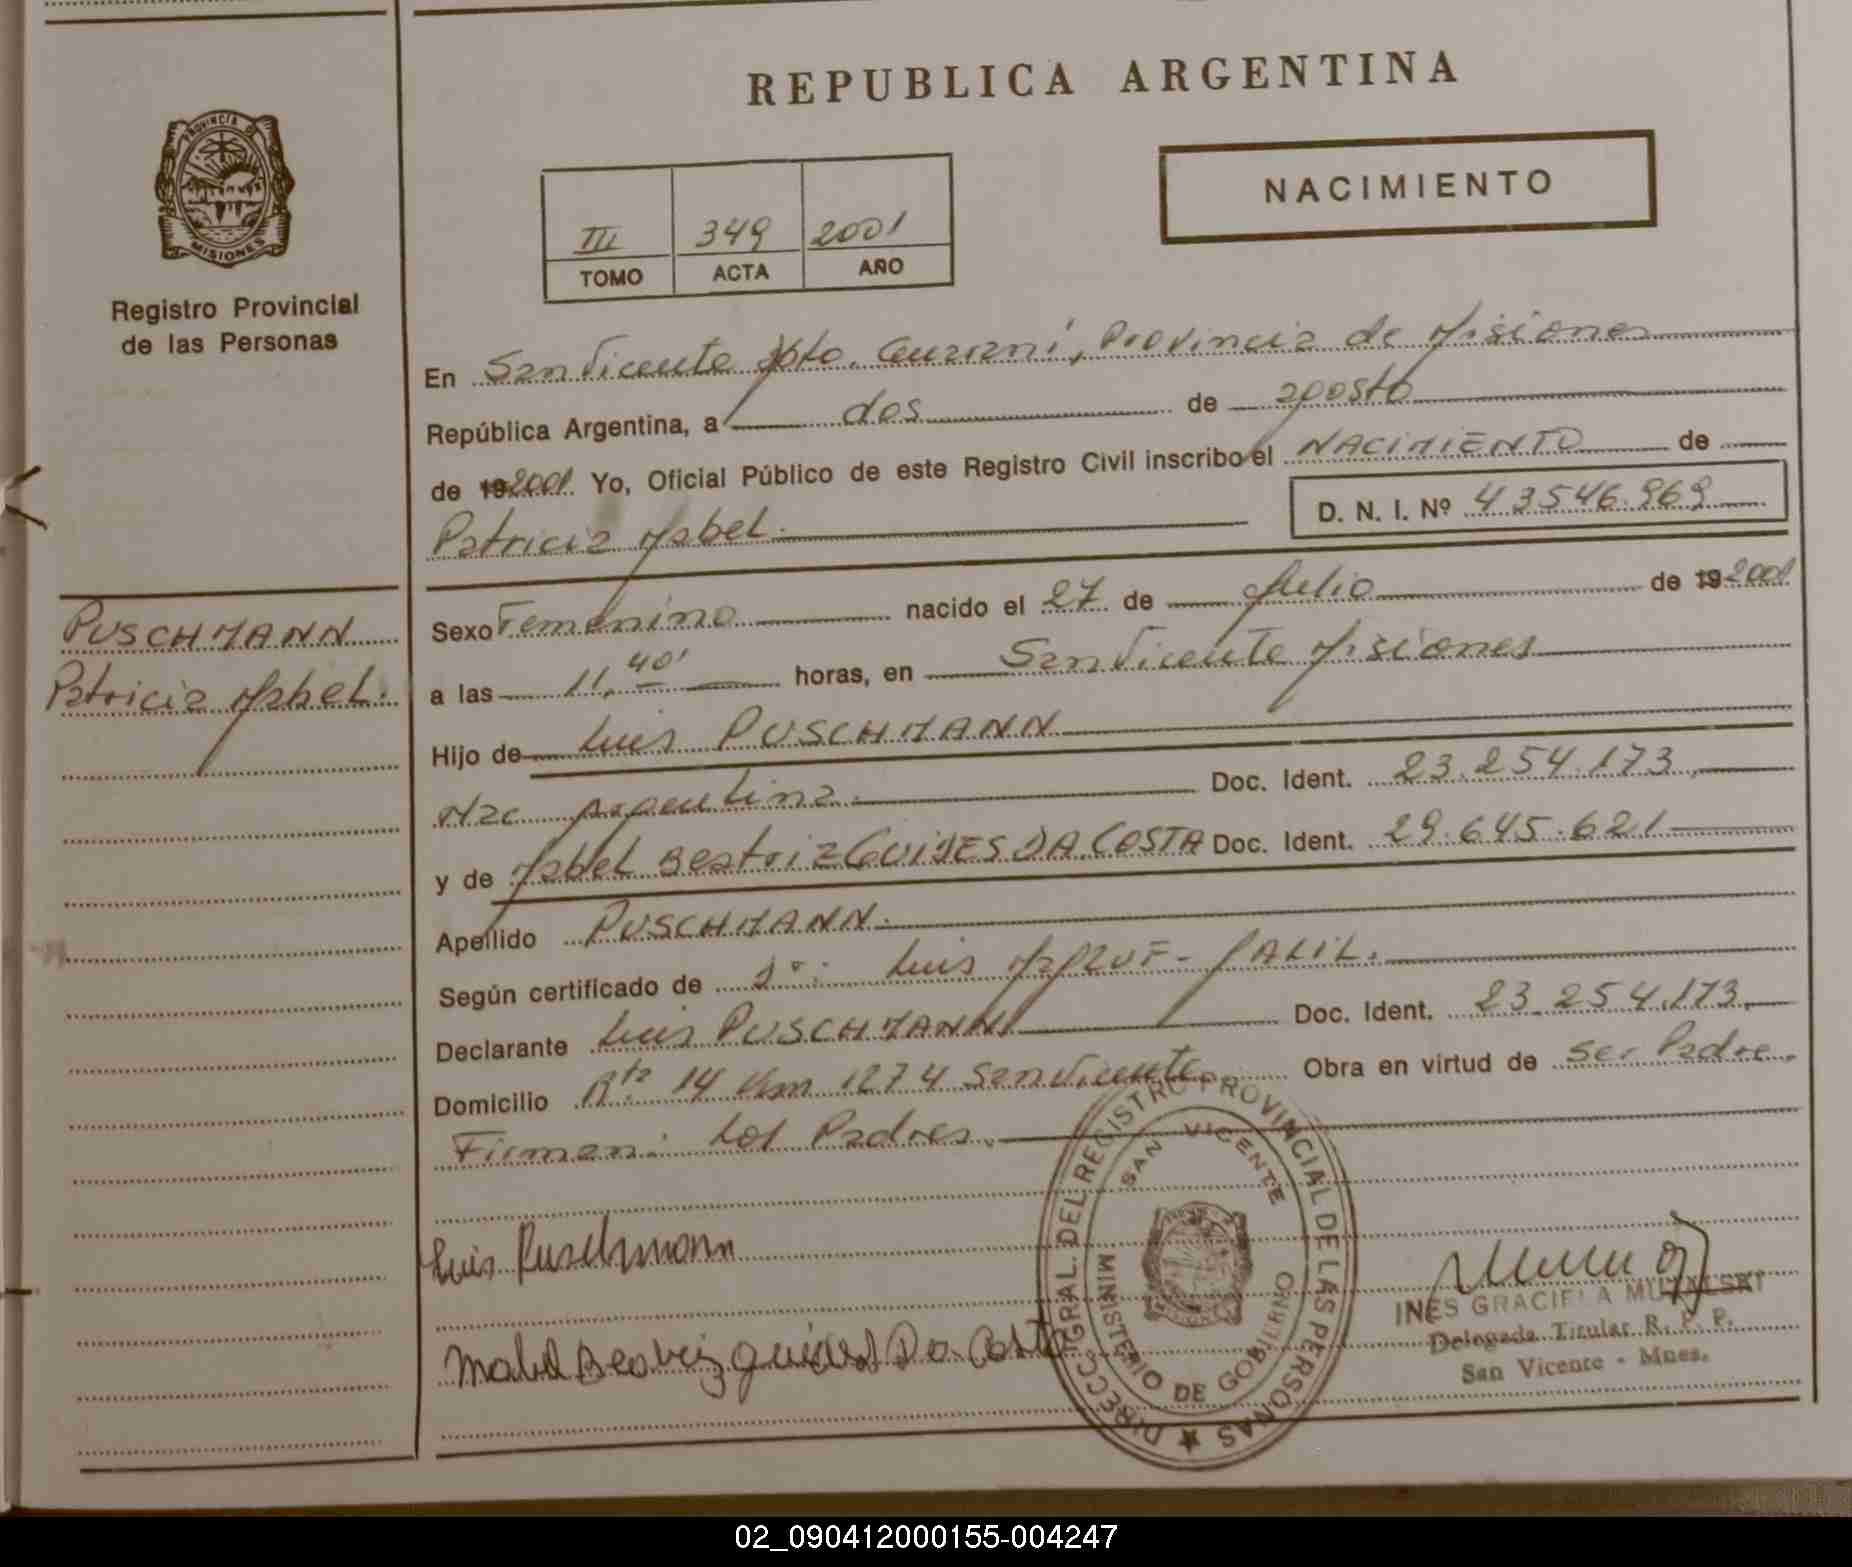 REPUBLICA ARGENTINA
PROVINCIA DE
MISIONES
Registro Provincial
de las Personas
NACIMIENTO
III 349 2001
TOMO ACTA AÑO
En San Vicente Dpto. Guaraní, Provincia de Misiones
República Argentina, a dos de agosto
de 192001 Yo, Oficial Público de este Registro Civil inscribo el NACIMIENTO de
Patricia Mabel. D. N. I. Nº 43546.969
PUSCHMANN
Patricia Mabel.
Sexo Femenino nacido el 27 de Julio de 192001
a las 11,40' horas, en San Vicente Misiones
Hijo de Luis PUSCHMANN
Nac Argentina. Doc. Ident. 23.254.173
y de Mabel Beatriz GUIDES DA COSTA Doc. Ident. 29.645.621
Apellido PUSCHMANN.
Según certificado de Dr: Luis JALIL.
Declarante Luis PUSCHMANN Doc. Ident. 23.254.173
Domicilio Rta. 14 Km 1274 San Vicente Obra en virtud de Ser Padre.
Firman: Los Padres.
Luis Puschmann
Mabel Beatriz Guides Da Costa
DIRECC. GRAL. DEL REGISTRO PROVINCIAL DE LAS PERSONAS
SAN VICENTE
MINISTERIO DE GOBIERNO
INES GRACIELA
Delegada Titular R. P. P.
San Vicente - Mnes.
02_090412000155-004247